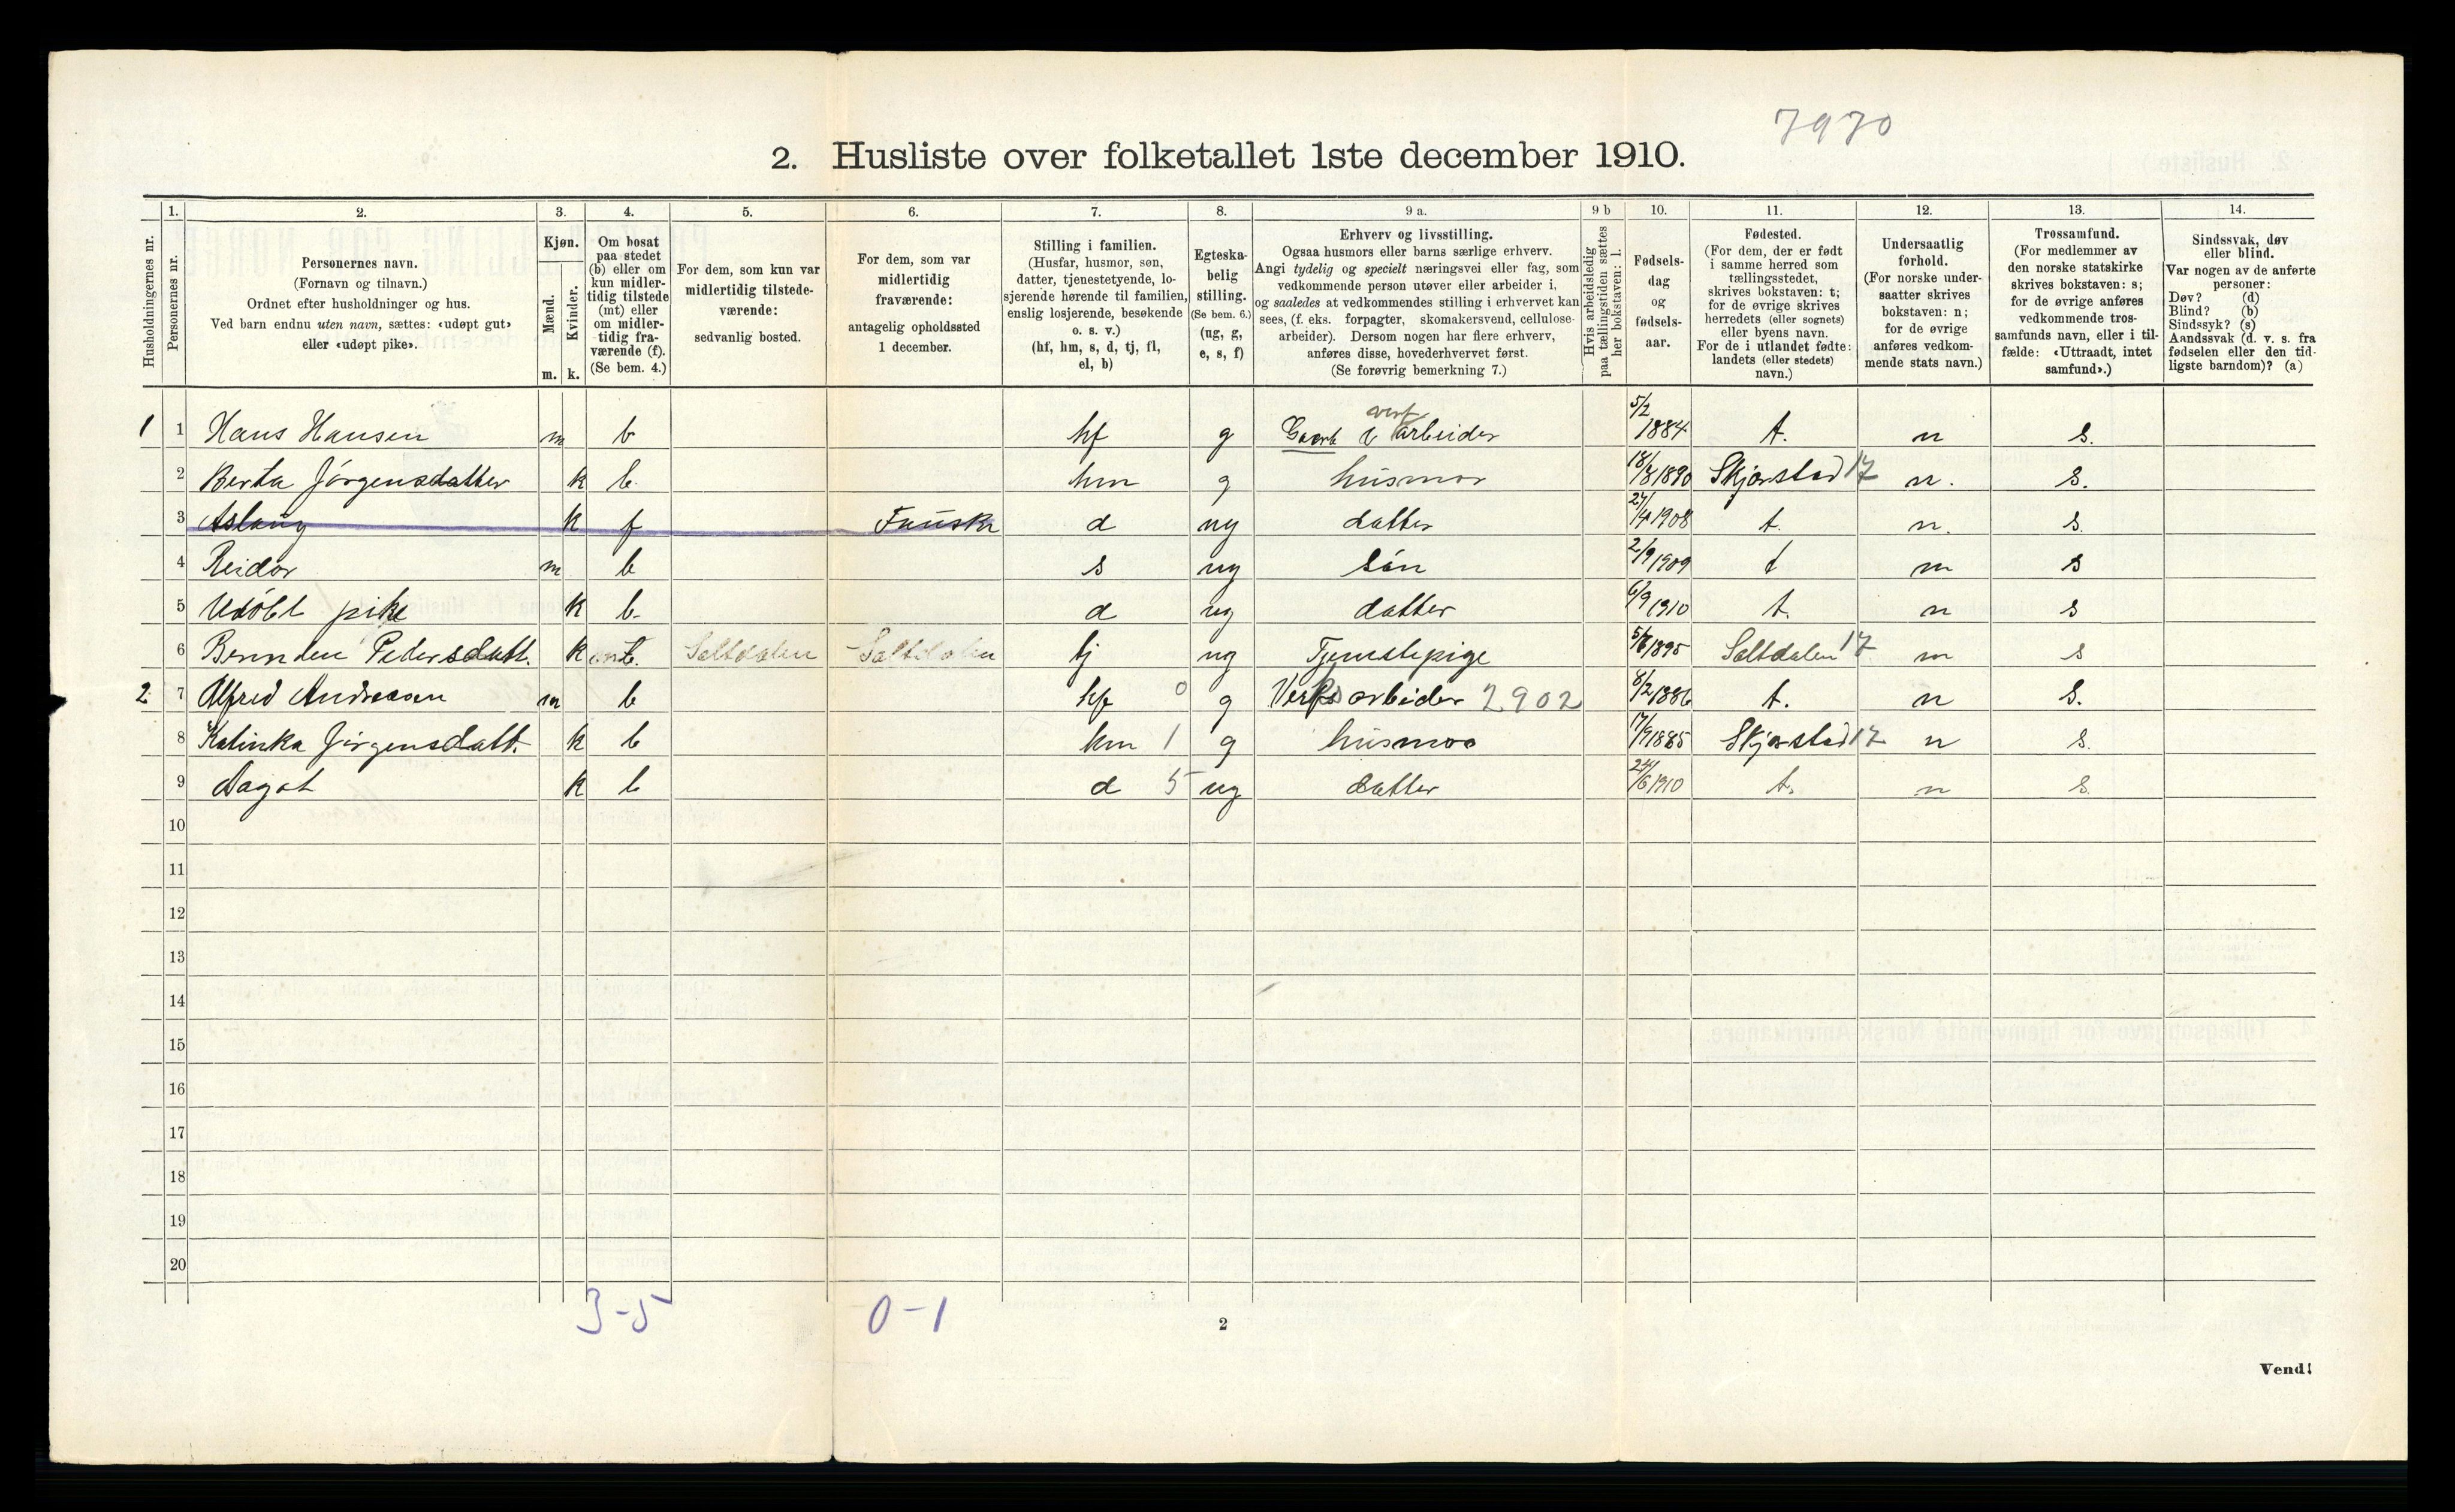 7970
2. Husliste over folketallet 1ste december 1910.
1. 2. 3. 4. 5. 6. 7. 8. 9 a. 9 b 10. 11. 12. 13. 14.
Husholdningernes nr.
Personernes nr.
Personernes navn.
(Fornavn og tilnavn.)
Ordnet efter husholdninger og hus.
Ved barn endnu uten navn, sættes: «udøpt gut»
eller «udøpt pike».
Kjøn.
Mænd.
Kvinder.
m. k.
Om bosat
paa stedet
(b) eller om
kun midler-
tidig tilstede
(mt) eller
om midler-
tidig fra-
værende (f).
(Se bem. 4.)
For dem, som kun var
midlertidig tilstede-
værende:
sedvanlig bosted.
For dem, som var
midlertidig
fraværende:
antagelig opholdssted
1 december.
Stilling i familien.
(Husfar, husmor, søn,
datter, tjenestetyende, lo-
sjerende hørende til familien,
enslig losjerende, besøkende
o. s. v.)
(hf, hm, s, d, tj, fl,
el, b)
Egteska-
belig
stilling.
(Se bem. 6.)
(ug, g,
e, s, f)
Erhverv og livsstilling.
Ogsaa husmors eller barns særlige erhverv.
Angi tydelig og specielt næringsvei eller fag, som
vedkommende person utøver eller arbeider i,
og saaledes at vedkommendes stilling i erhvervet kan
sees, (f. eks. forpagter, skomakersvend, cellulose-
arbeider). Dersom nogen har flere erhverv,
anføres disse, hovederhvervet først.
(Se forøvrig bemerkning 7.)
Hvis arbeidsledig
paa tællingstiden sættes
her bokstaven: l.
Fødsels-
dag
og
fødsels-
aar.
Fødested.
(For dem, der er født
i samme herred som
tællingsstedet,
skrives bokstaven: t;
for de øvrige skrives
herredets (eller sognets)
eller byens navn.
For de i utlandet fødte:
landets (eller stedets)
navn.)
Undersaatlig
forhold.
(For norske under-
saatter skrives
bokstaven: n;
for de øvrige
anføres vedkom-
mende stats navn.)
Trossamfund.
(For medlemmer av
den norske statskirke
skrives bokstaven: s;
for de øvrige anføres
vedkommende tros-
samfunds navn, eller i til-
fælde: «Uttraadt, intet
samfund».)
Sindssvak, døv
eller blind.
Var nogen av de anførte
personer:
Døv? (d)
Blind? (b)
Sindssyk? (s)
Aandssvak (d. v. s. fra
fødselen eller den tid-
ligste barndom)? (a)
1 1 Hans Hansen m b hf g verk arbeider 5/2 1884 t. n s.
2 Berta Jørgensdatter k b. hm g husmor 18/8 1890 Skjerstad 17 n. s.
3 Aslaug k f Fauske d ug datter 27/4 1908 t. n. s.
4 Reidar m b s ug søn 2/9 1909 t n s
5 Udøbt pike k b. d ug datter 6/9 1910 t. n s
6 Pedersdatt. k mt. Saltdalen Saltdalen tj ug Tjenstepige 1895 Saltdalen 17 n s
2 7 Alfred Andreasen m b hf 0 g Verksarbeider 2902 8/2 1886 t. n s.
8 Kalinka Jørgensdatt. k b hm 1 g husmor 17/9 1885 Skjerstad 17 n s.
9 Dagot k b d 5 ug datter 24/6 1910 t. n s.
10
11
12
13
14
15
16
17
18
19
20
3-5 0-1
2
Vend!